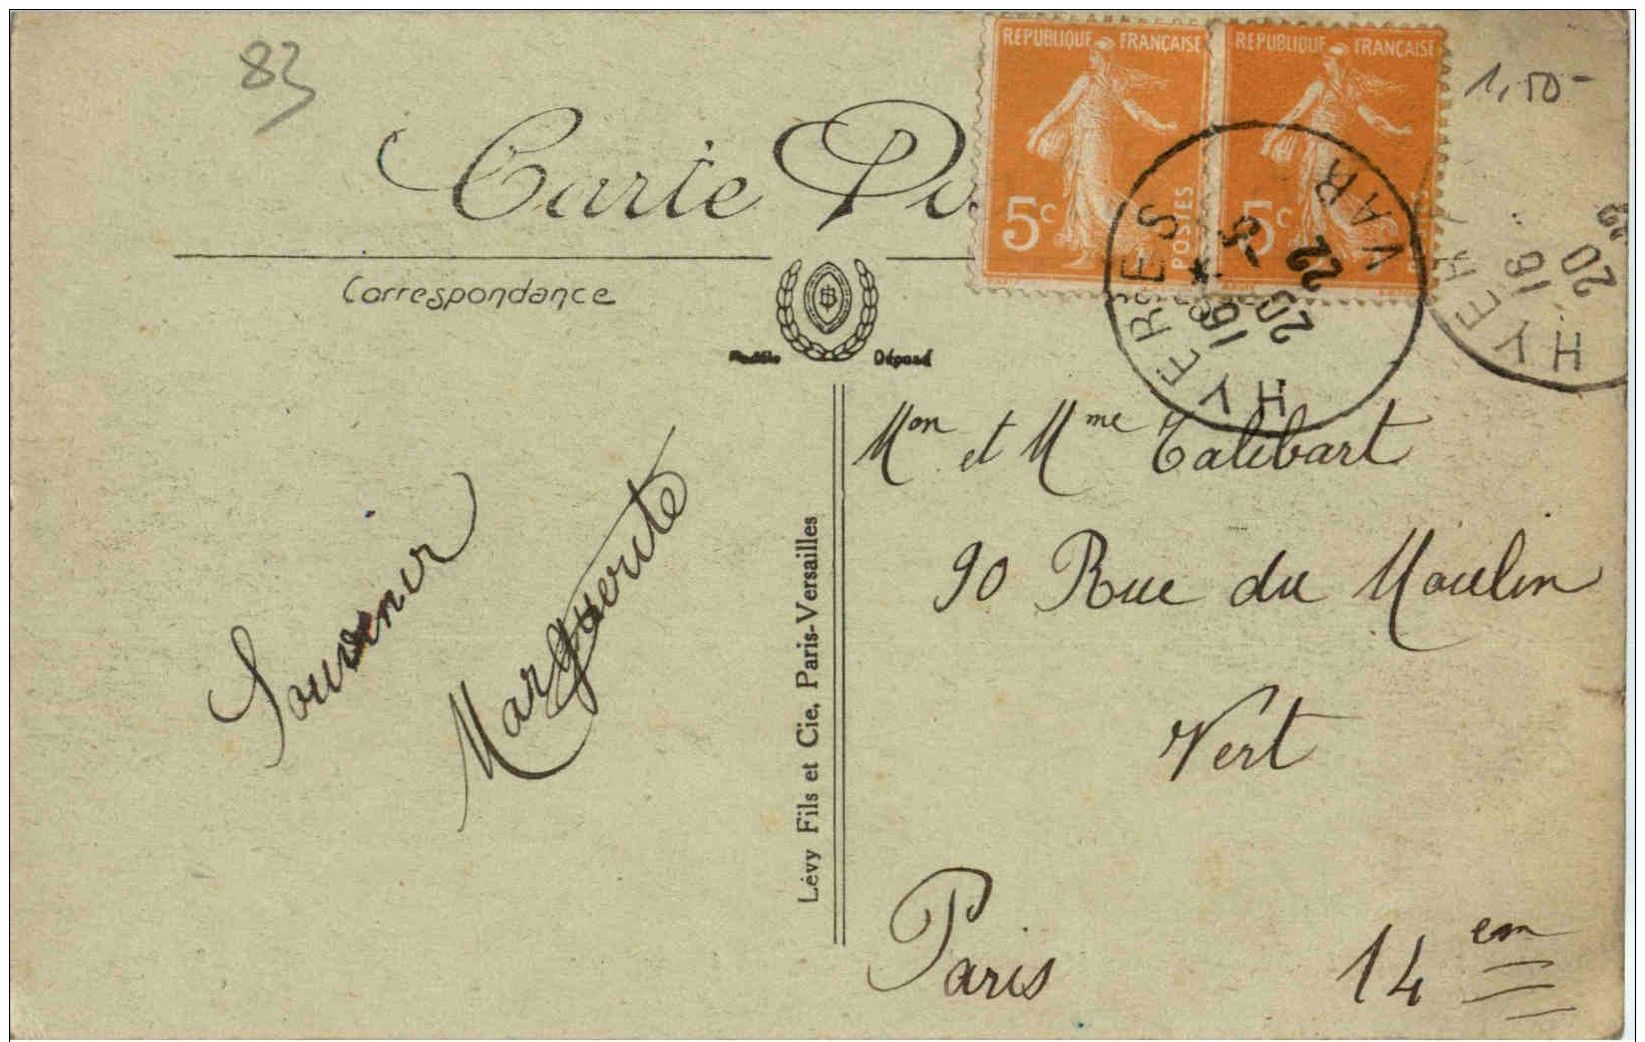 83
1,50-
REPUBLIQUE FRANÇAISE
5c
POSTES
REPUBLIQUE FRANÇAISE
5c
HYERES
VAR
*
20 - 5
22
HYER
16
20
22
Carte
Correspondance
Modèle Déposé
Souvenir
Marguerite
Lévy Fils et Cie, Paris-Versailles
Mon et Mme Talibart
90 Rue du Moulin
Vert
Paris 14em